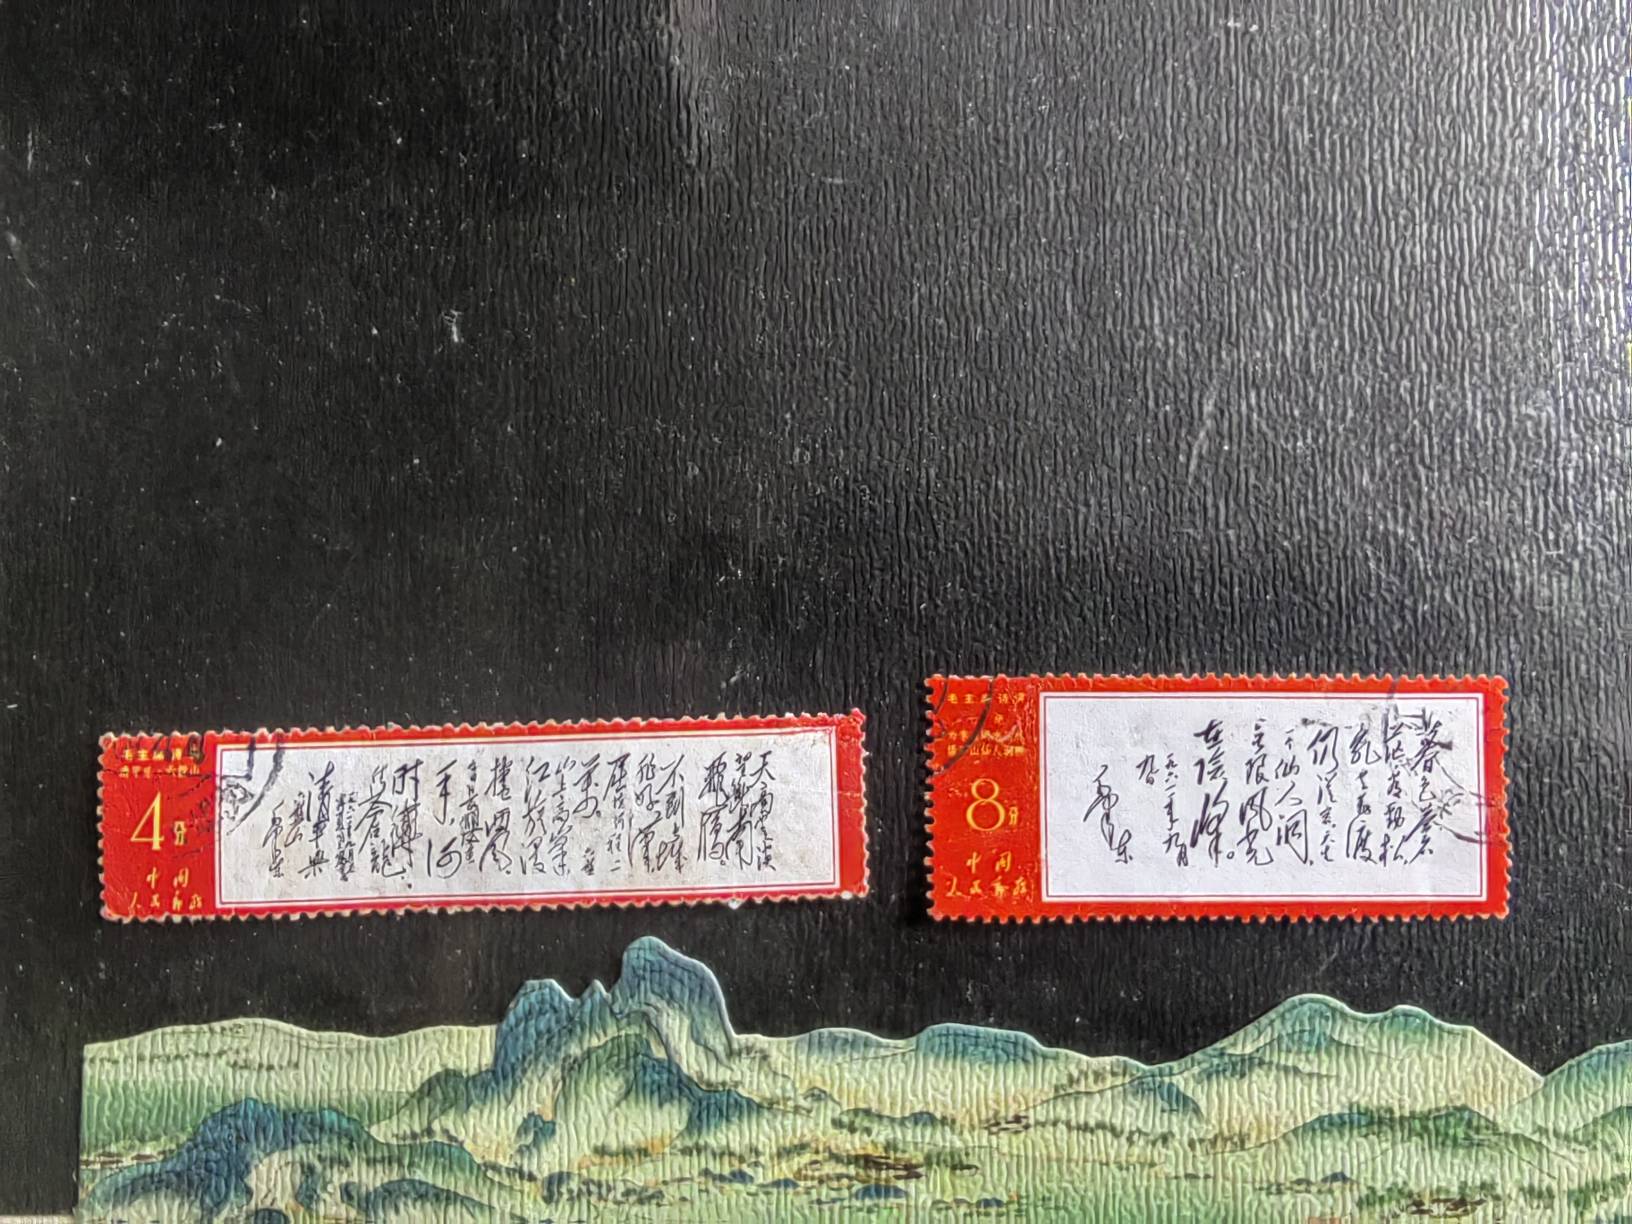 毛主席诗词
清平乐·六盘山
4分
中国
人民邮政
天高云淡
望断南
飞雁
不到长城
非好汉
屈指行程二
万
六盘
山上高峰
红旗漫
卷西风
今日长缨在
手，何
时缚
住苍龙
清平乐
六盘山
毛泽东
毛主席诗词
8分
中国
人民邮政
暮色苍
茫看劲松
乱云飞渡
仍从容天生
一个仙人洞
无限风光
在险峰
一九六一年九月
九日
毛泽东